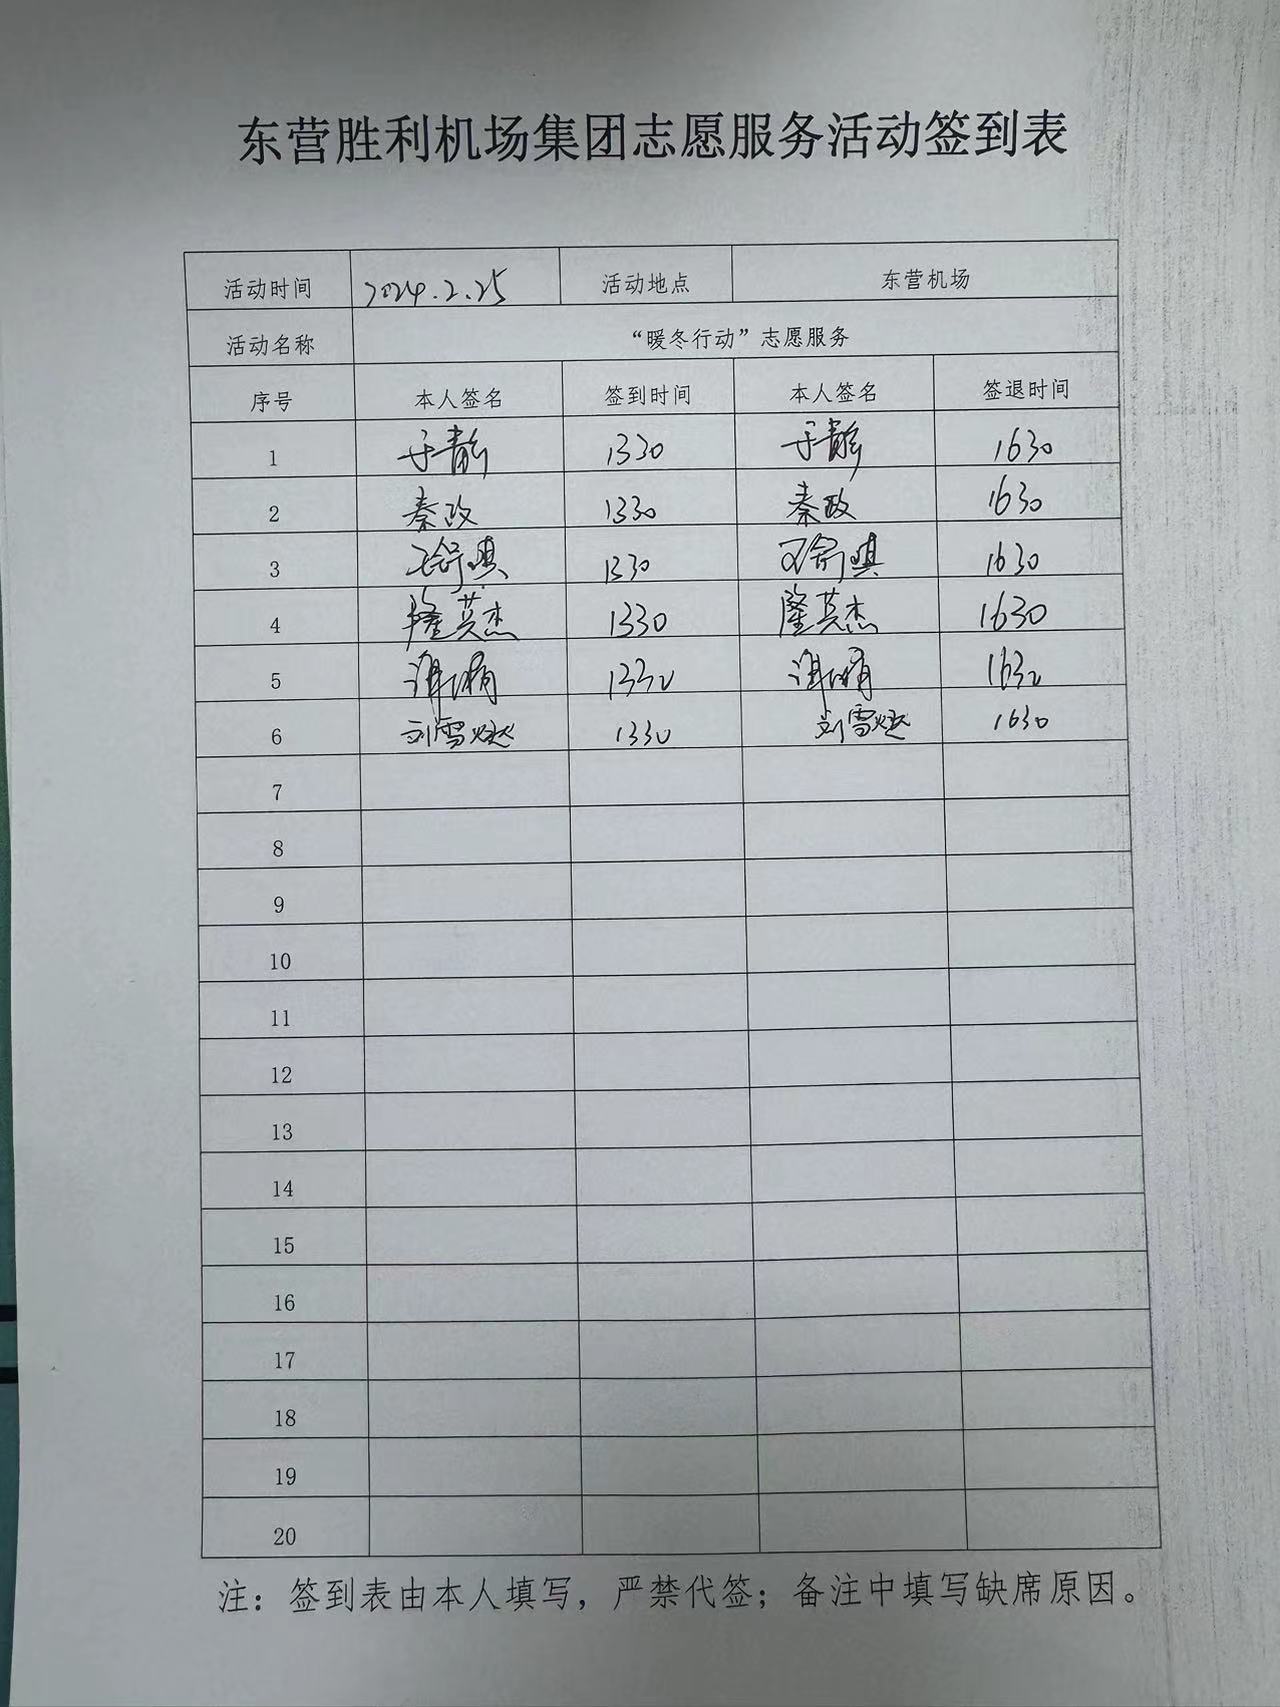 东营胜利机场集团志愿服务活动签到表
活动时间 2024.2.25 活动地点 东营机场
活动名称 “暖冬行动”志愿服务
序号 本人签名 签到时间 本人签名 签退时间
1 于静 1330 于静 1630
2 秦政 1330 秦政 1630
3 王舒琪 1330 王舒琪 1630
4 隆英杰 1330 隆英杰 1630
5 1330 1630
6 刘雪燃 1330 刘雪燃 1630
7
8
9
10
11
12
13
14
15
16
17
18
19
20
注：签到表由本人填写，严禁代签；备注中填写缺席原因。